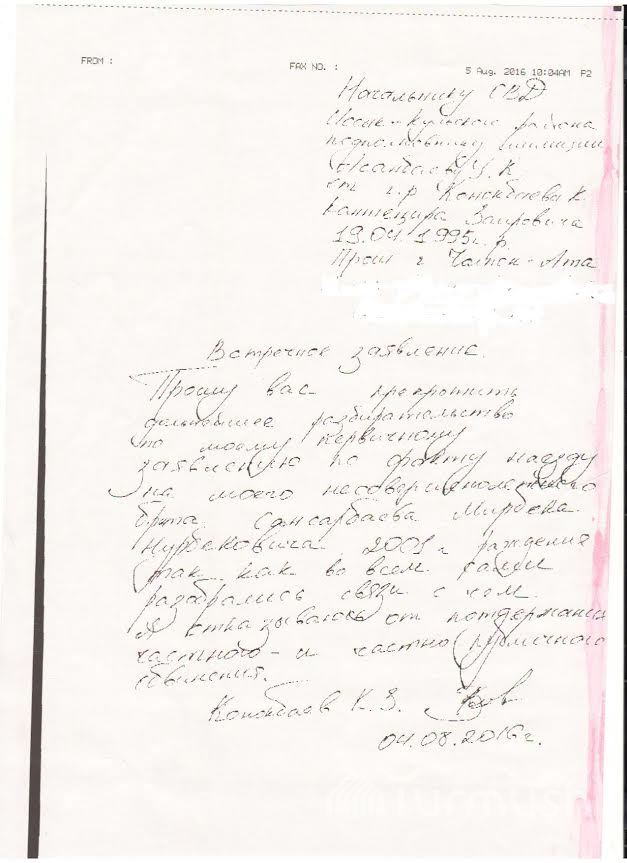 FROM :
FAX NO. :
5 Aug. 2016 10:04AM P2
Начальнику ОВД
Иссык-Кульского района
подполковнику милиции
У.К
от г.р Конокбаева К.
Кантемира Заировича
19.04.1995г.р.
Прож г Чолпон-Ата
Встречное заявление.
Прошу вас прекротить
дальнейшее разбирательство
по моему первичному
заявлению по факту наезду
на моего несовершенолетнего
брата Сансарбаева Мирбека
Нурбековича 2003г раждения
так как во всем сами
разобрались связи с чем.
Я отказываюсь от потдержания
частного-и частно публичного
обвинения.
Конокбаев К.З.
04.08.2016г.
Turmush